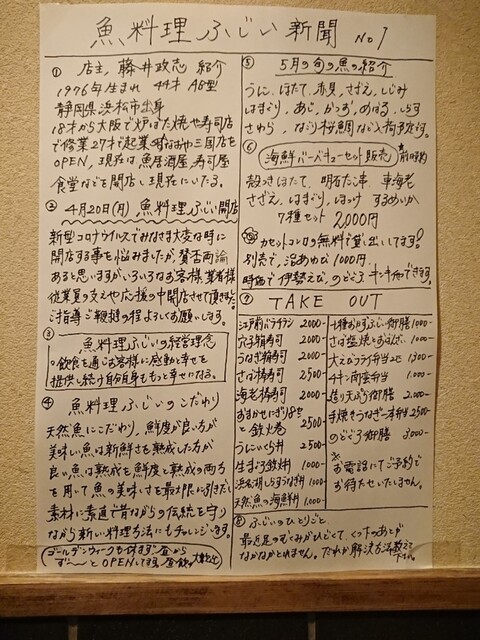 魚料理ふじい新聞 No1
① 店主 藤井政志 紹介
1976年生まれ 44才 AB型
静岡県浜松市出身
18才から大阪で炉ばた焼や寿司店
で修業27才で起業
OPEN、現在は魚居酒屋、寿司屋
食堂などを開店し現在にいたる。
② 4月20日(月) 魚料理ふじい開店
新型コロナウイルスでみなさま大変な時に
開店する事を悩みましたが、賛否両論
あると思いますがいろいろなお客様、業者様
従業員の支えや応援の中開店させて頂きた
ご指導ご鞭撻の程よろしくお願いします。
③ 魚料理ふじいの経営理念
○飲食を通じお客様に感動と幸せを
提供し続け自分自身ももっと幸せになる。
④ 魚料理ふじいのこだわり
天然魚にこだわり、鮮度が良い方が
美味い魚は新鮮さを熟成した方が
良い魚は熟成を鮮度と熟成の両方
を用して魚の美味しさを最大限に引きだし
素材に素直で昔ながらの伝統を守り
ながら新しい料理方法にもチャレンジします。
ゴールデンウィークも休まず昼から
ず〜とOPENしてます 昼飲み大歓迎
⑤ 5月の旬の魚の紹介
うに、ほたて、赤貝、さざえ、しじみ
はまぐり、あじ、かつお、めばる、しらす
さわら、など入荷予定です。
⑥ 海鮮バーベキューセット販売 ※前日予約
殻つきほたて、明石だこ串、車海老
さざえ、はまぐり、ほっけ、するめいか
7種セット 2,000円
カセットコンロの無料で貸し出いしてます!
別売で、活あわび1000円
時価で伊勢えび、のどぐろ、キンキ
⑦ TAKE OUT
江戸前バラチラシ 2000-
穴子箱寿司 2000-
うなぎ箱寿司 2000-
さば棒寿司 2500-
海老棒寿司 2000-
おまかせにぎり8コと鉄火巻 2500-
うにいくら丼 2500-
生まぐろ鉄火丼 1000-
浜名湖しらすうなぎ丼 1500-
天然魚の海鮮丼 1,000-
十種おかずふじい御膳 1000-
さば塩焼とおばんざい 1,000-
大えびフライ弁当2コ 1300-
チキン南蛮弁当 1.000-
盛り天ぷら御膳 2,000-
手焼きうなぎ一本弁当 2500-
のどぐろ御膳 3,000-
※お電話にてご予約で
お待たせいたしません。
⑧ ふじいのひとりごと。
最近足のむくみがひどくて、くつ下のあとが
なかなかとれません。だれか解決方法教えて下さい。